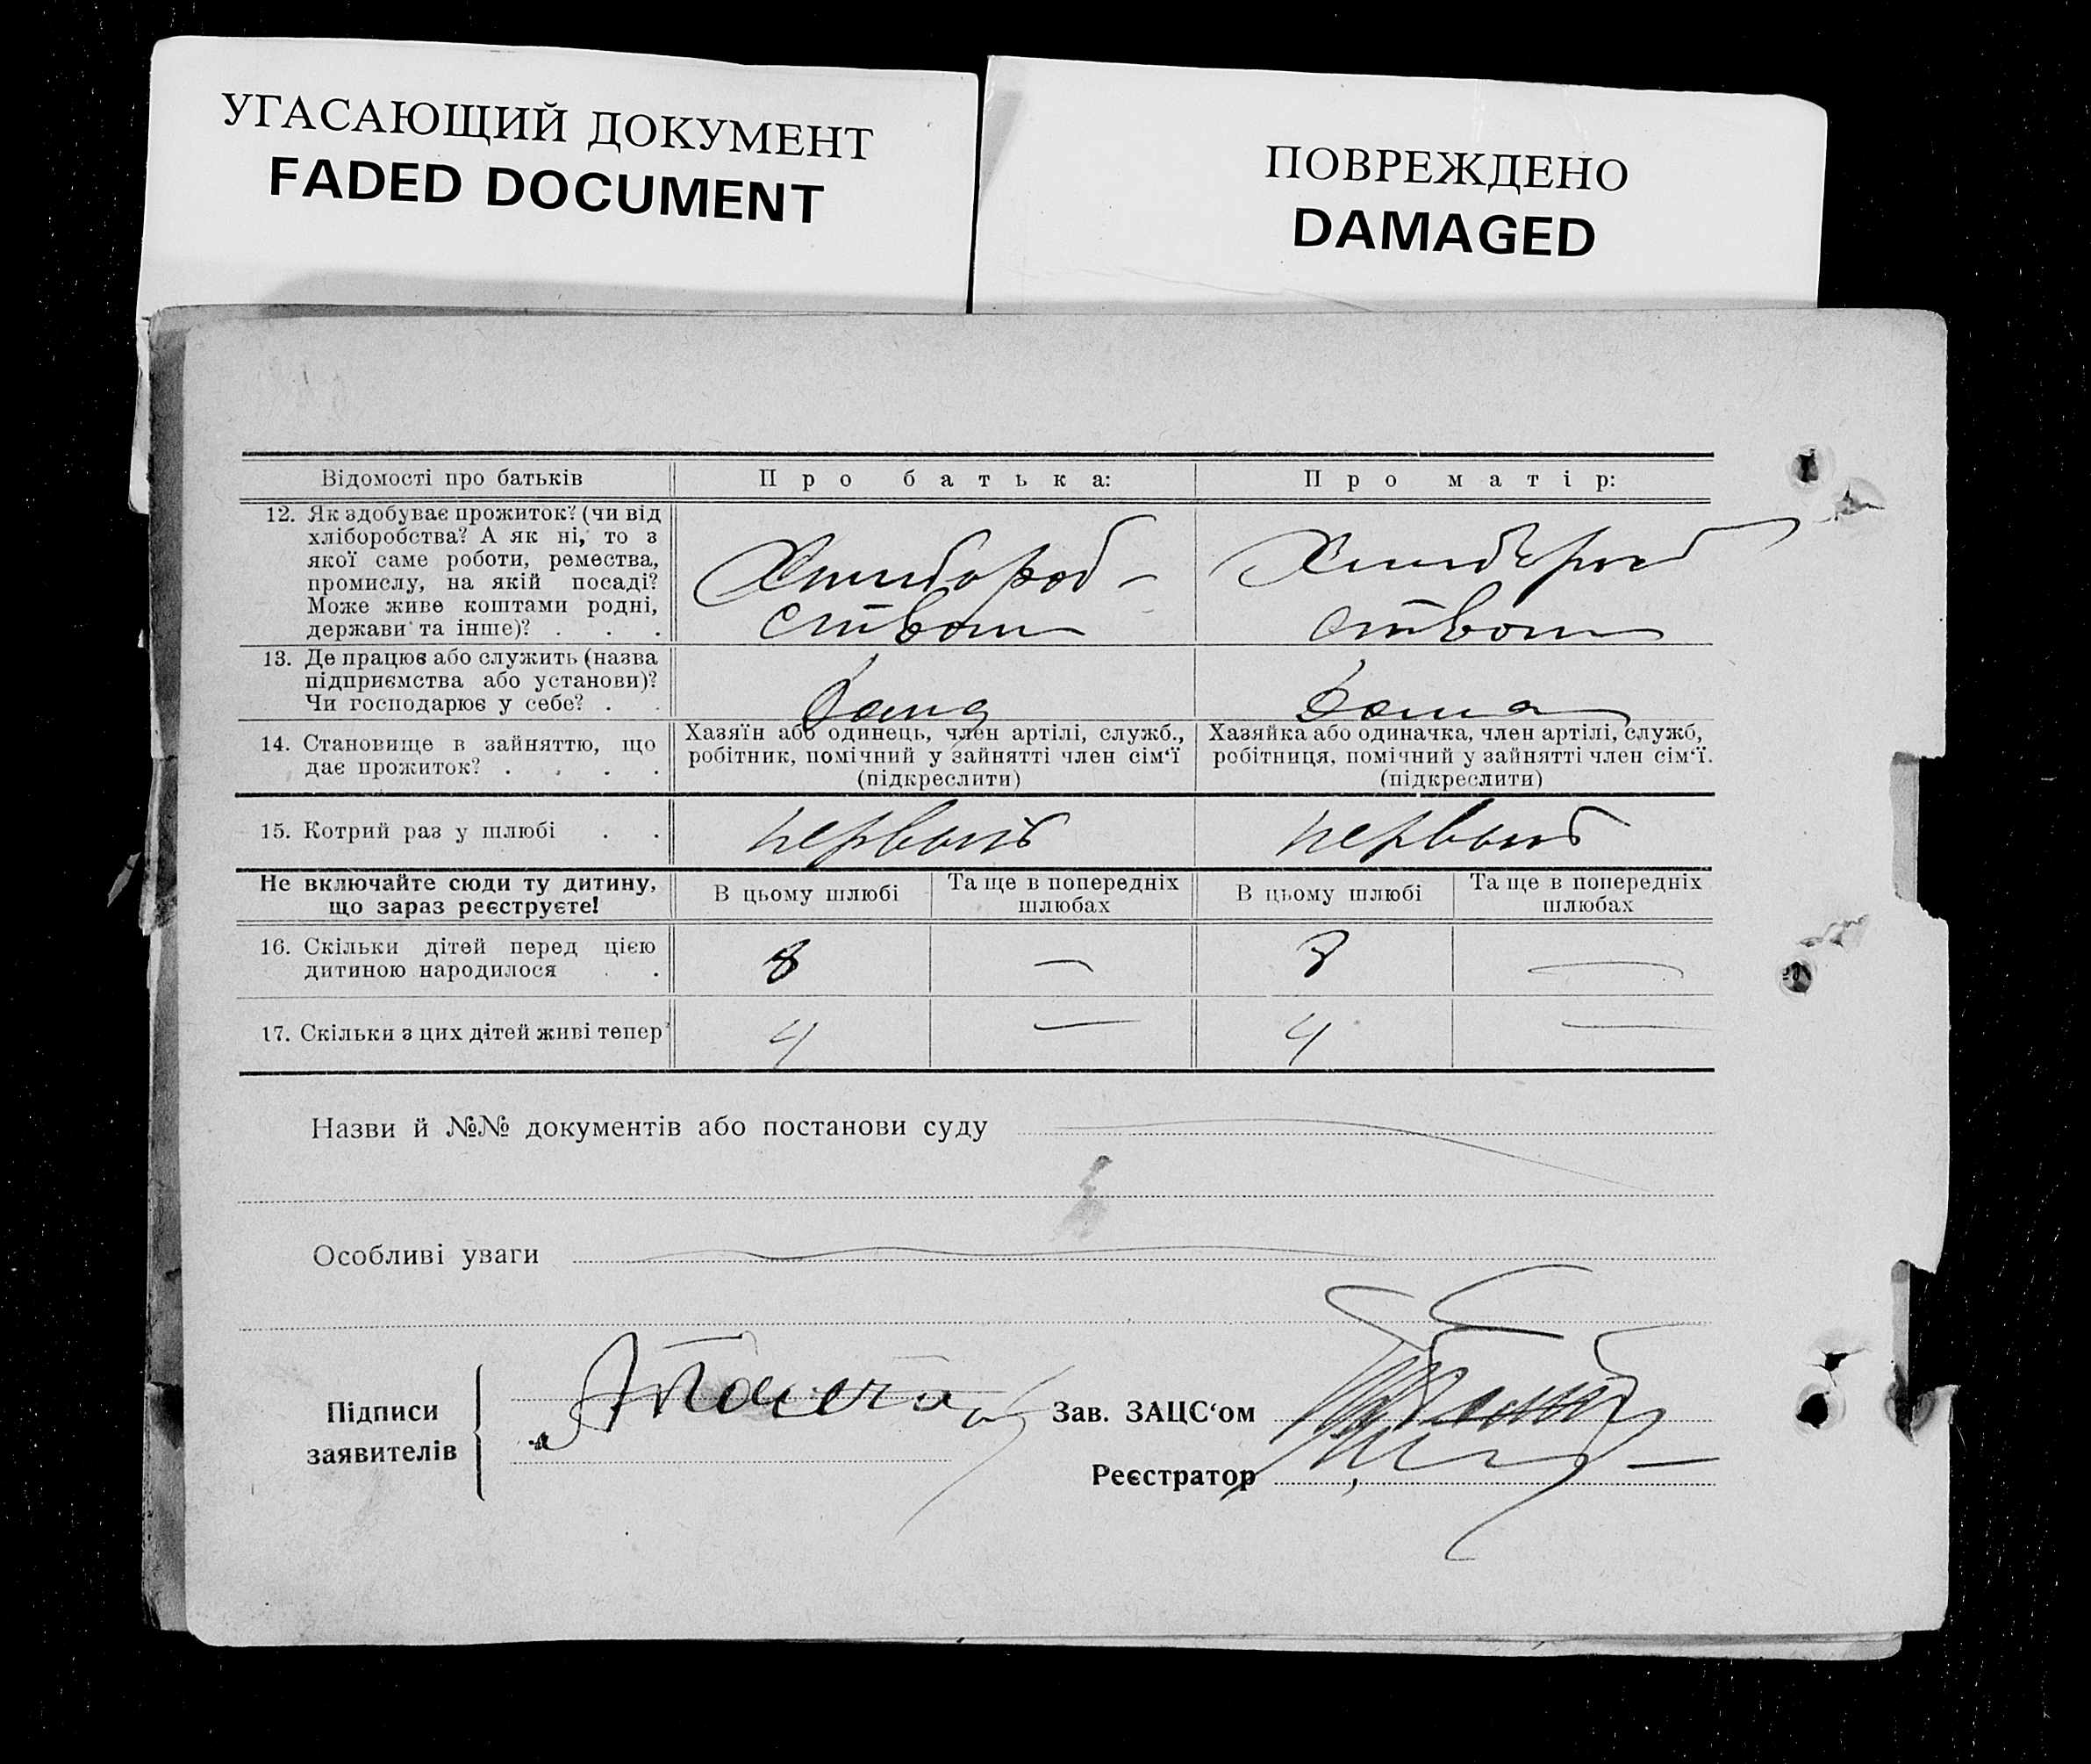 УГАСАЮЩИЙ ДОКУМЕНТ
FADED DOCUMENT
ПОВРЕЖДЕНО
DAMAGED
Відомості про батьків
Про батька:
Про матір:
12. Як здобуває прожиток? (чи від
хліборобства? А як ні, то з
якої саме роботи, ремества,
промислу, на якій посаді?
Може живе коштами родні,
держави та інше)? . . .
Хлибороб-
ством
Хлибороб
ством
13. Де працює або служить (назва
підприємства або установи)?
Чи господарює у себе? . .
Дома
Дома
14. Становище в зайняттю, що
дає прожиток? . . . .
Хазяїн або одинець, член артілі, служб.,
робітник, помічний у зайнятті член сім‘ї
(підкреслити)
Хазяйка або одиначка, член артілі, служб,
робітниця, помічний у зайнятті член сім‘ї.
(підкреслити)
15. Котрий раз у шлюбі . .
первый
первый
Не включайте сюди ту дитину,
що зараз реєструєте!
В цьому шлюбі
Та ще в попередніх
шлюбах
В цьому шлюбі
Та ще в попередніх
шлюбах
16. Скільки дітей перед цією
дитиною народилося . .
8
—
8
—
17. Скільки з цих дітей живі тепер
4
—
4
—
Назви й №№ документів або постанови суду
Особливі уваги
Підписи
заявителів
Зав. ЗАЦС‘ом
Реєстратор